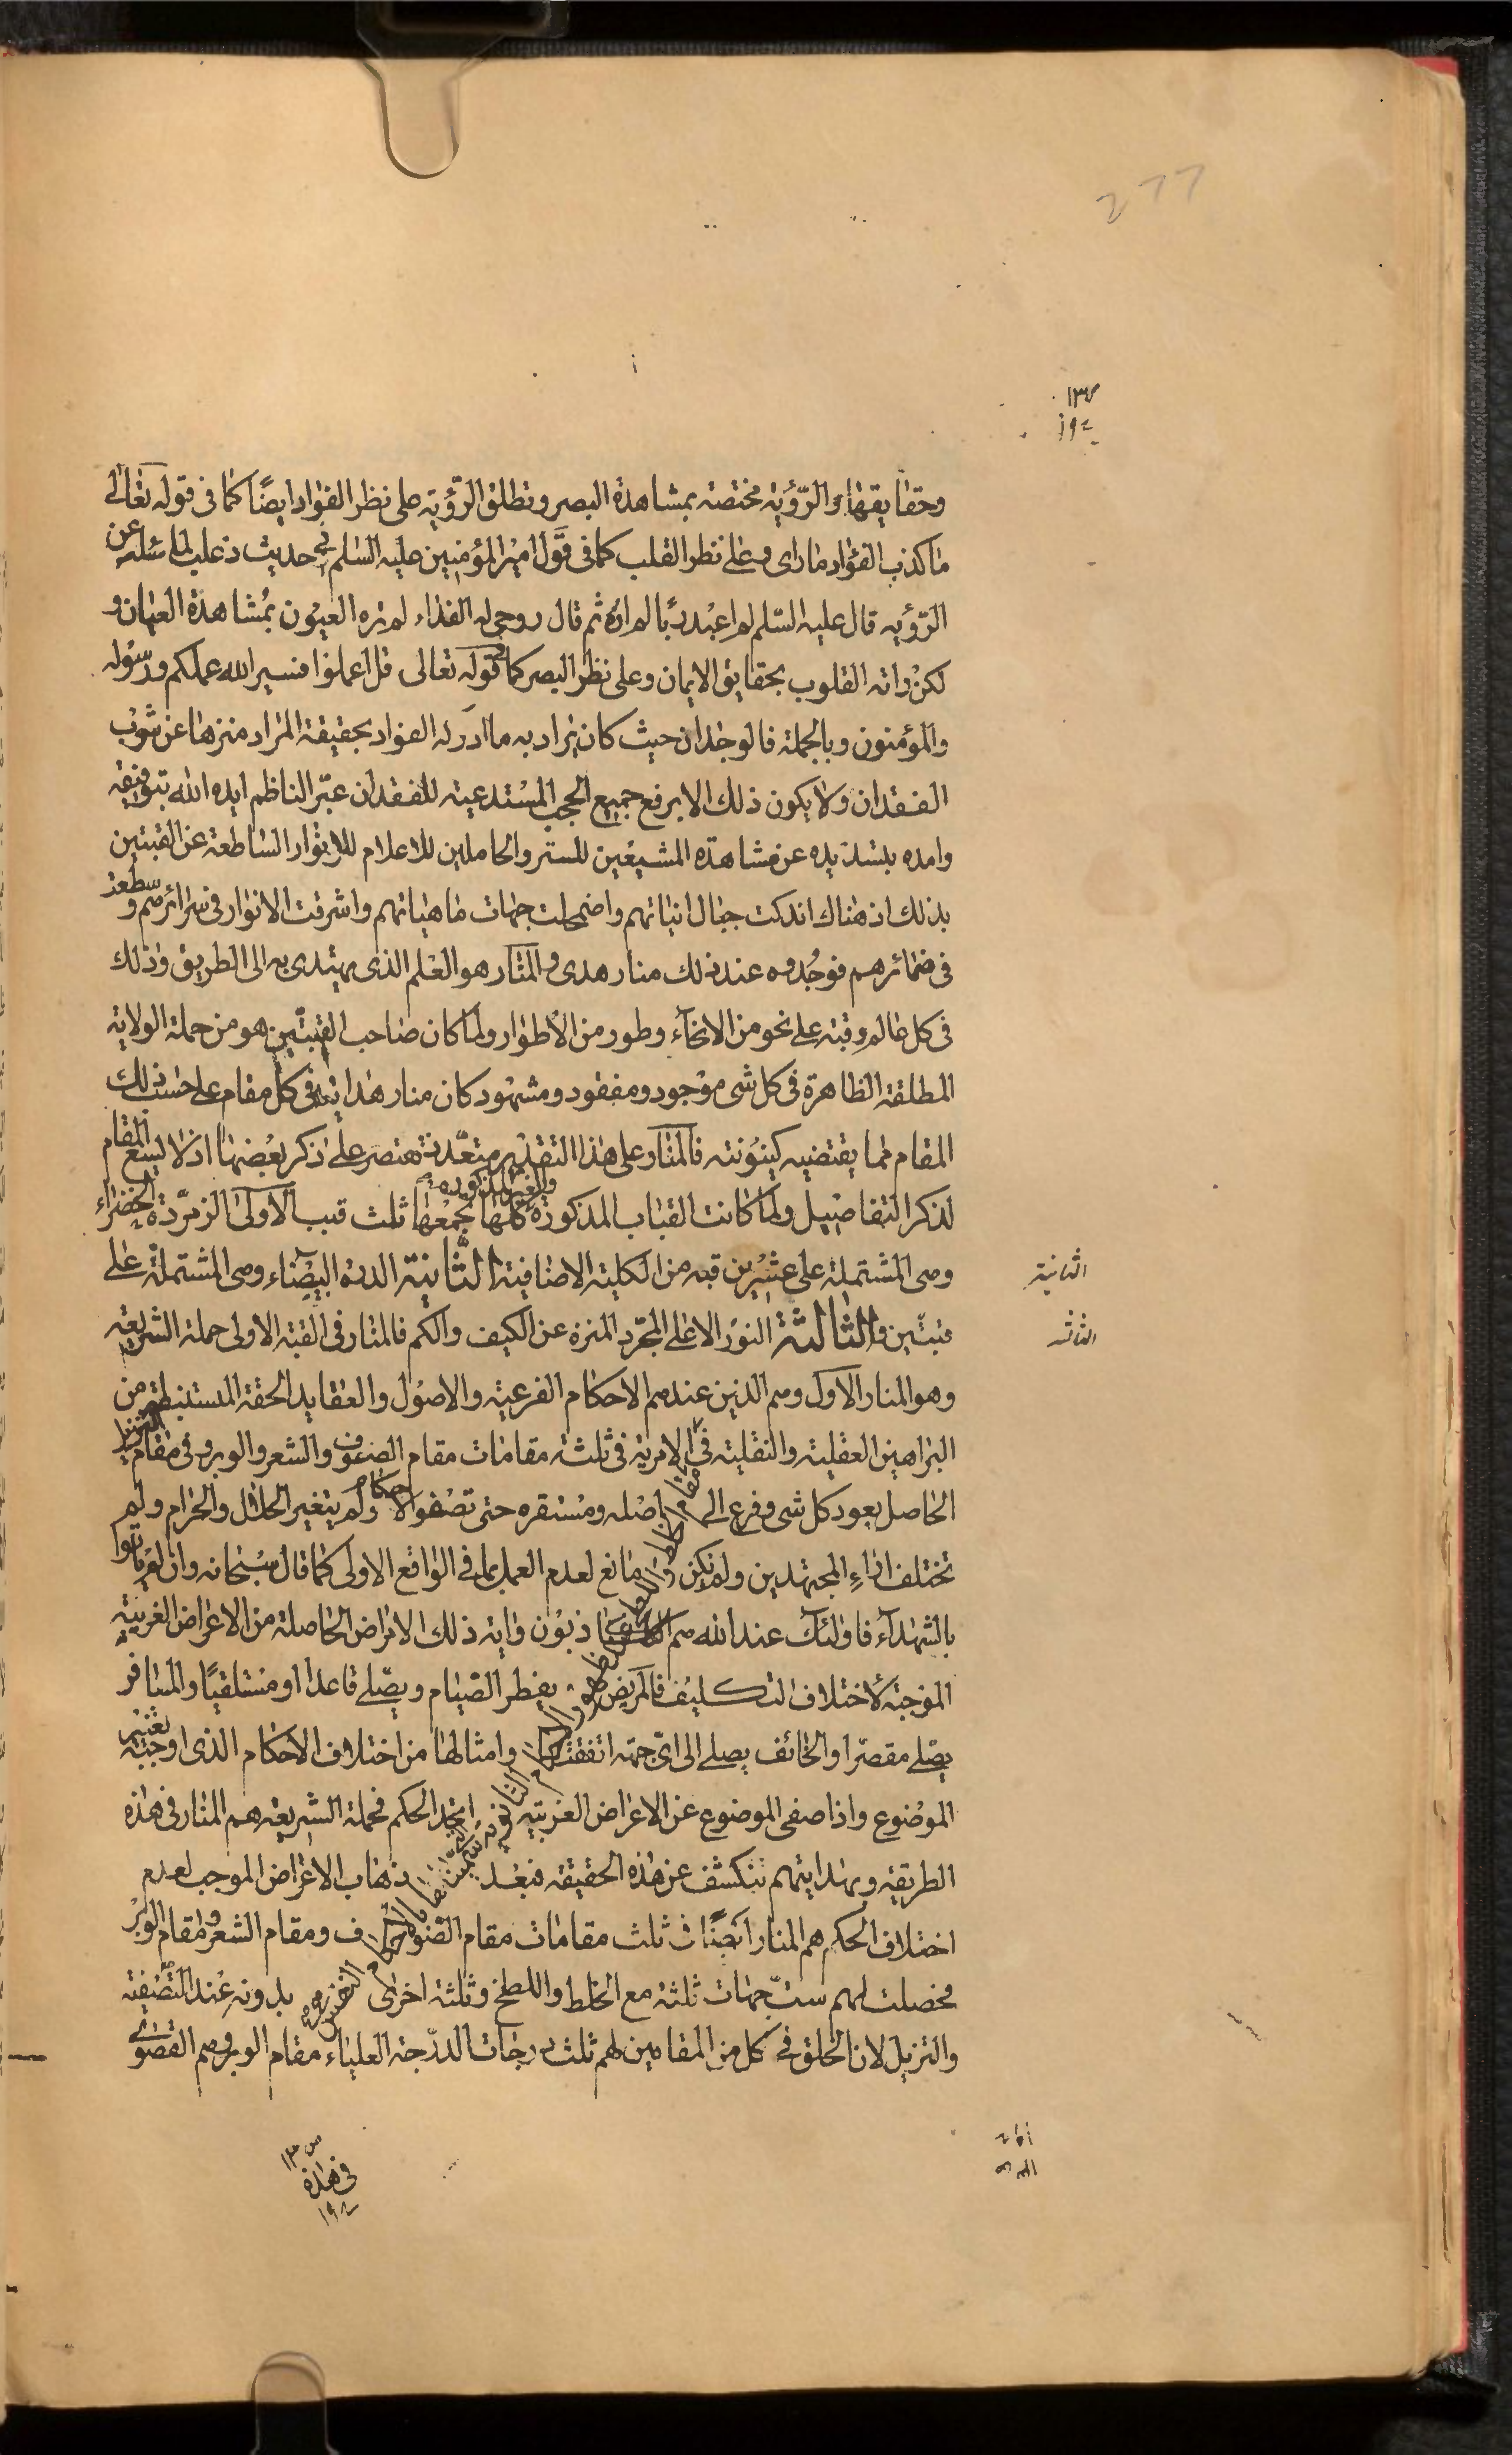 277
١٣٧
١٩٤
وحقايقها والرّؤية مختصة بمشاهدة البصر وتطلق الرّؤية على نظر الفؤاد ايضًا كما فى قوله تعالى
ماكذب الفؤاد ماراى وعلى نظر القلب كما فى قول امير المؤمنين عليه السّلم فى حديث ذعلب لما سئله عن
الرّؤيه قال عليه السّلم لم اعبد ربًا لم اره ثم قال روحى له الفداء لم تره العيون بمشاهدة العيان و
لكن راته القلوب بحقايق الايمان وعلى نظر البصر كما فى قوله تعالى قل اعملوا فسيرالله عملكم ورسوله
والمؤمنون وبالجملة فالوجدان حيث كان يراد به ما ادركه الفؤاد بحقيقة المراد منزها عن شوب
الفقدان ولا يكون ذلك الا برفع جميع الحجب المستدعية للفقدان عبّر الناظم ايده الله بتوفيقه
وامده بتسديده عن مشاهدة المشيعين للستر والحاملين للاعلام للانوار الساطعة عن القبتين
بذلك اذ هناك اندكت جبال انياتهم واضمحلت جهات ماهياتهم واشرقت الانوار فى سرائرهم وسطعت
فى ضمائرهم فوجدوه عند ذلك منار هدى والمنار هو العلم الذى يهتدى به الى الطريق وذلك
فى كل عالم وقبة على نحو من الانحآء وطور من الاطوار ولما كان صاحب القبتين هو من حملة الولاية
المطلقة الظاهرة فى كل شى موجود ومفقود ومشهود كان منار هدايته فى كل مقام على حسب ذلك
المقام مما يقتضيه كينونته فالمنار على هذا التقدير متعددة نقتصر على ذكر بعضها اذ لا يسع المقام
لذكر التفاصيل ولما كانت القباب المذكورة والغير المذكوره كلها تجمعها ثلث قبب الاولى الزمرّدة الخضراء
وهى المشتملة على عشرين قبه من الكلية الاضافية الثّانية الدرة البيضاء وهى المشتملة على
قبتين والثالثة النور الاعلى المجرد المنزه عن الكيف والكم فالمنار فى القبة الاولى حملة الشريعة
وهو المنار الاول وهم الذين عندهم الاحكام الفرعية والاصول والعقايد الحقة المستنبطة من
البراهين العقلية والنقلية فى الامرية فى ثلثة مقامات مقام الصوف والشعر والوبر وفى مقام
الحاصل بعود كل شى وفرع الى اصله ومستقره حتى تصفو الاحكام ولم يتغير الحلال والحرام ولم
تختلف اراء المجتهدين ولم يكن مانع لعدم العمل بما فى الواقع الاولى كما قال سبحانه وان لم ياتوا
بالشهدآء فاولئك عند الله هم الكاذبون واية ذلك الامراض الحاصلة من الاعراض الغريبة
الموجبة لاختلاف التكليف فالمريض يفطر الصيام ويصّلى قاعدا او مستلقيًا والمسافر
يصّلى مقصرا والخائف يصلى الى اىّ جهة اتفقت وامثالها من اختلاف الاحكام الذى اوجبته تغيير
الموضوع واذا صفى الموضوع عن الاعراض الغريبه اتحد الحكم فحملة الشريعة هم المنار فى هذه
الطريقة وبهدايتهم تنكشف عن هذه الحقيقة فبعد ذهاب الاعراض الموجب لعدم
اختلاف الحكم هم المنار ايضًا فى ثلث مقامات مقام الصوف ومقام الشعر ومقام الوبر
فحصلت لهم ستّ جهات ثلثة مع الخلط واللطخ وثلثة اخرى بدونه عند التصفية
والتزييل لان الخلق فى كل من المقامين لهم ثلث درجات الدرّجة العلياء مقام الوبر وهم القصوى
الثانية
الثالثة
فى هذه
١٩٤